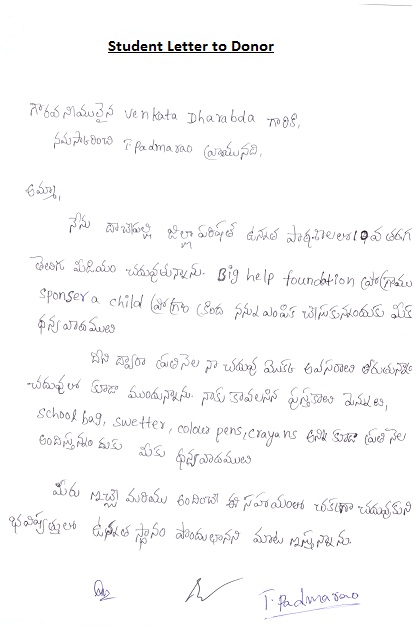 Student Letter to Donor
గౌరవనీయులైన Venkata Dharabda గారికి,
నమస్కరించి T Padmarao వ్రాయునది,
అమ్మా,
నేను దాచేపల్లి జిల్లా పరిషత్ ఉన్నత పాఠశాలలో 10వ తరగతి
తెలుగు మీడియం చదువుతున్నాను. Big help foundation ప్రోగ్రాము
sponser a child ప్రోగ్రాం క్రింద నన్ను ఎంపిక చేసుకున్నందుకు మీకు
ధన్యవాదములు
దీని ద్వారా ప్రతినెల నా చదువు యొక్క అవసరాలు తీరుతున్నాయి
చదువులో కూడా ముందున్నాను. నాకు కావలసిన పుస్తకాలు, పెన్నులు,
school bag, swetter, colour pens, crayans అన్ని కూడా ప్రతి నెల
అందిస్తున్నందుకు మీకు ధన్యవాదములు
మీరు ఇచ్చే మరియు అందించే ఈ సహాయంతో చక్కగా చదువుకుని
భవిష్యత్తులో ఉన్నత స్థానం పొందుతానని మాట ఇస్తున్నాను.
T. Padmarao